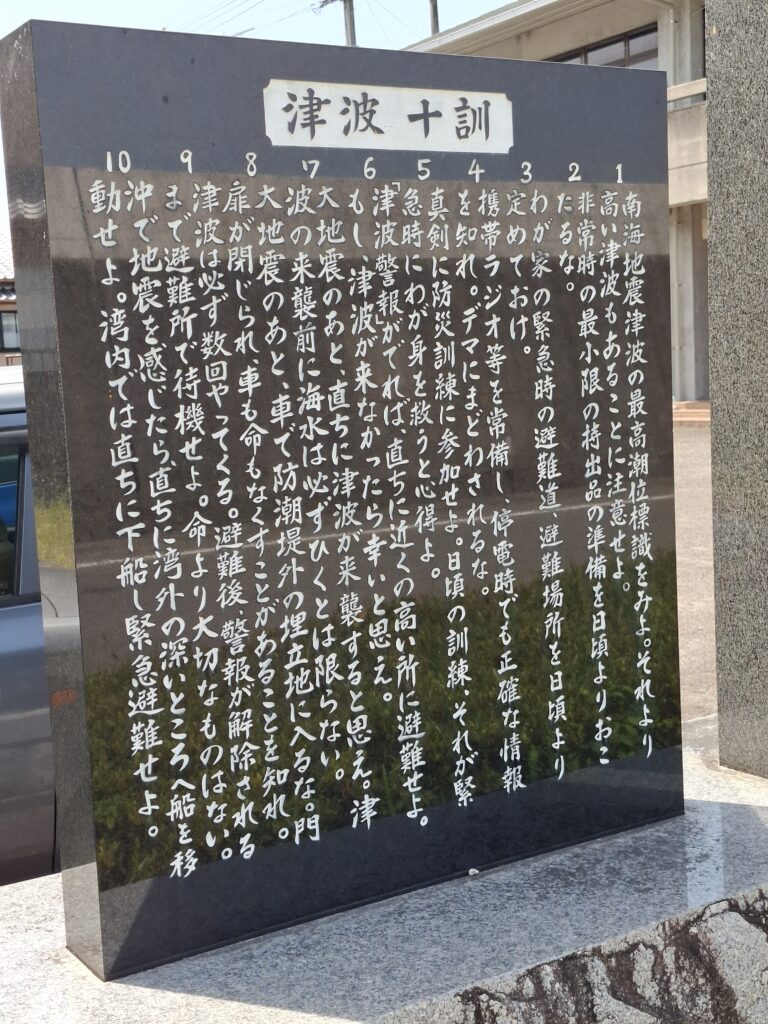 津波十訓
1 南海地震津波の最高潮位標識をみよ。それより
高い津波もあることに注意せよ。
2 非常時の最小限の持出品の準備を日頃よりおこ
たるな。
3 わが家の緊急時の避難道、避難場所を日頃より
定めておけ。
4 携帯ラジオ等を常備し、停電時でも正確な情報
を知れ。デマにまどわされるな。
5 真剣に防災訓練に参加せよ。日頃の訓練、それが緊
急時にわが身を救うと心得よ。
6 「津波警報」がでれば、直ちに近くの高い所に避難せよ。
もし、津波が来なかったら幸いと思え。
7 大地震のあと、直ちに津波が来襲すると思え。津
波の来襲前に海水は必ずひくとは限らない。
8 大地震のあと、車で防潮堤外の埋立地に入るな。門
扉が閉じられ、車も命もなくすことがあることを知れ。
9 津波は必ず数回やってくる。避難後、警報が解除される
まで避難所で待機せよ。命より大切なものはない。
10 沖で地震を感じたら、直ちに湾外の深いところへ船を移
動せよ。湾内では直ちに下船し緊急避難せよ。